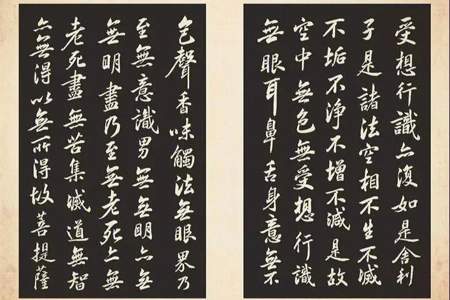 受想行識亦復如是舍利
子是諸法空相不生不滅
不垢不淨不增不減是故
空中無色無受想行識
無眼耳鼻舌身意無
色聲香味觸法無眼界乃
至無意識界無無明亦無
無明盡乃至無老死亦無
老死盡無苦集滅道無智
亦無得以無所得故菩提薩